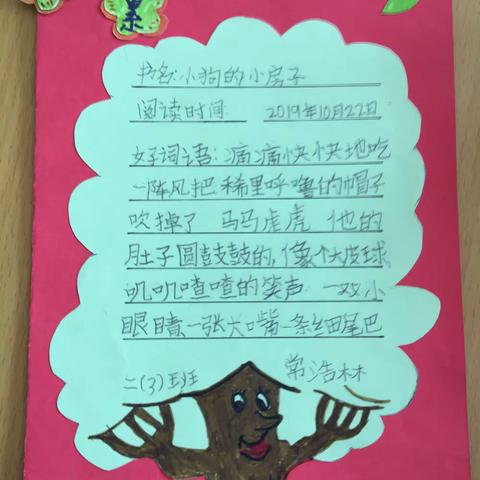 书名:小狗的小房子
阅读时间: 2019年10月22日
好词语:痛痛快快地吃
一阵风把稀里呼噜的帽子
吹掉了 马马虎虎 他的
肚子圆鼓鼓的,像个大皮球
叽叽喳喳的笑声 一双小
眼睛一张大嘴一条细尾巴
二(3)班 常浩林